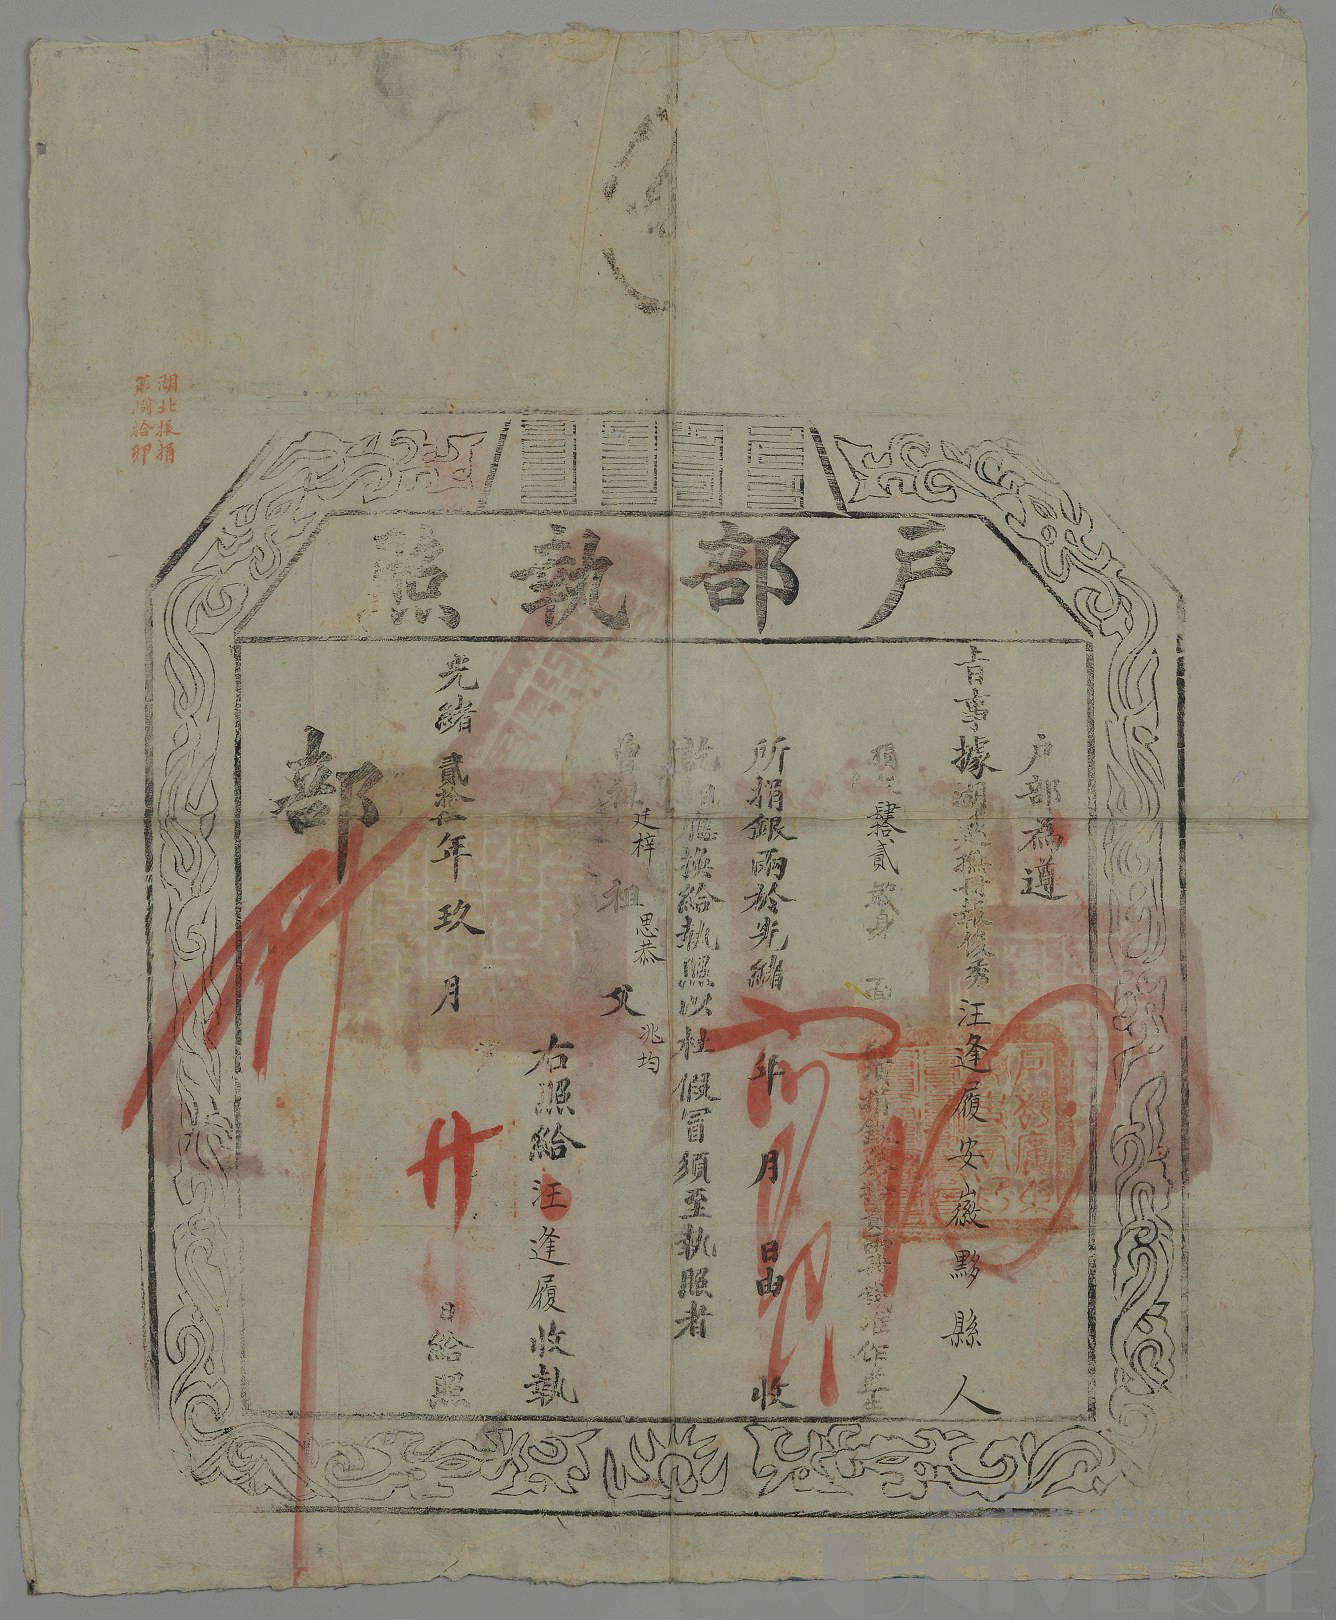 戶部執照
戶部為遵
旨事據湖北巡撫冊報俊秀汪逢履安徽黟縣人
年肆拾貳歲身 面 鬚捐銀 准作監生
所捐銀兩於光緒 年 月 日由 收
訖相應換給執照以杜假冒須至執照者
曾祖廷梓 祖思恭 父兆均
右照給汪逢履收執
光緒貳拾 年玖月廿 日給照
部
湖北振捐
第 拾卯
UNIVERSE